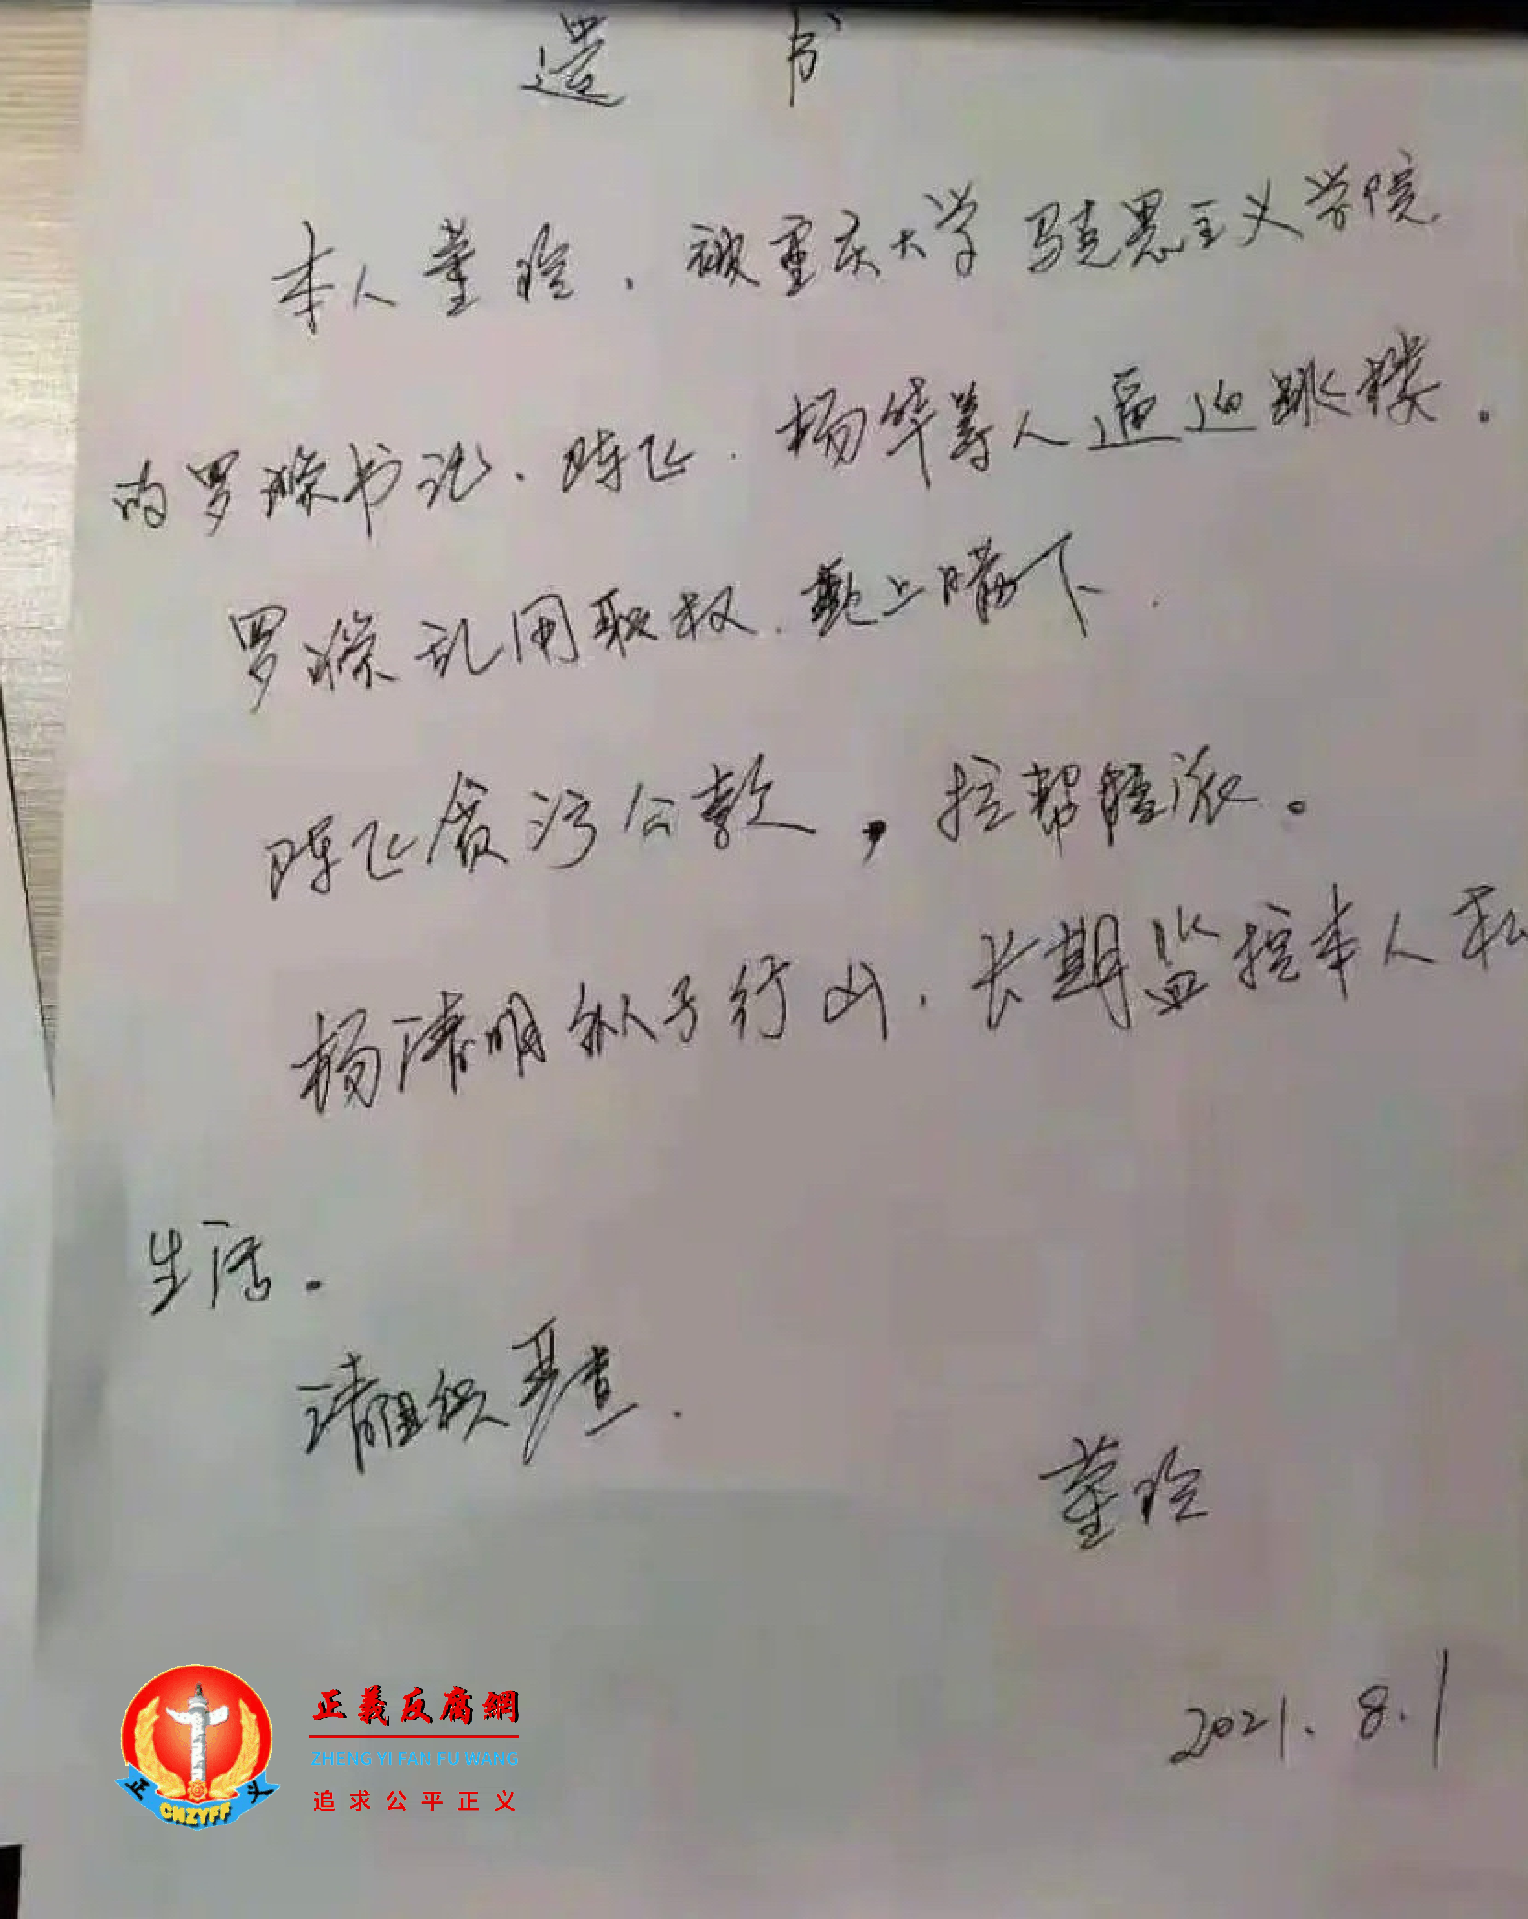 遗 书
本人董玲，被重庆大学马克思主义学院
的罗 书记、陈飞、杨华等人逼迫跳楼。
罗 乱用职权、欺上瞒下、
陈飞贪污公款，拉帮结派。
杨清明纵子行凶、长期监控本人私
生活。
请组织严查.
董玲
2021.8.1
正義反腐網
ZHENG YI FAN FU WANG
追求公平正义
正 义
CNZYFF